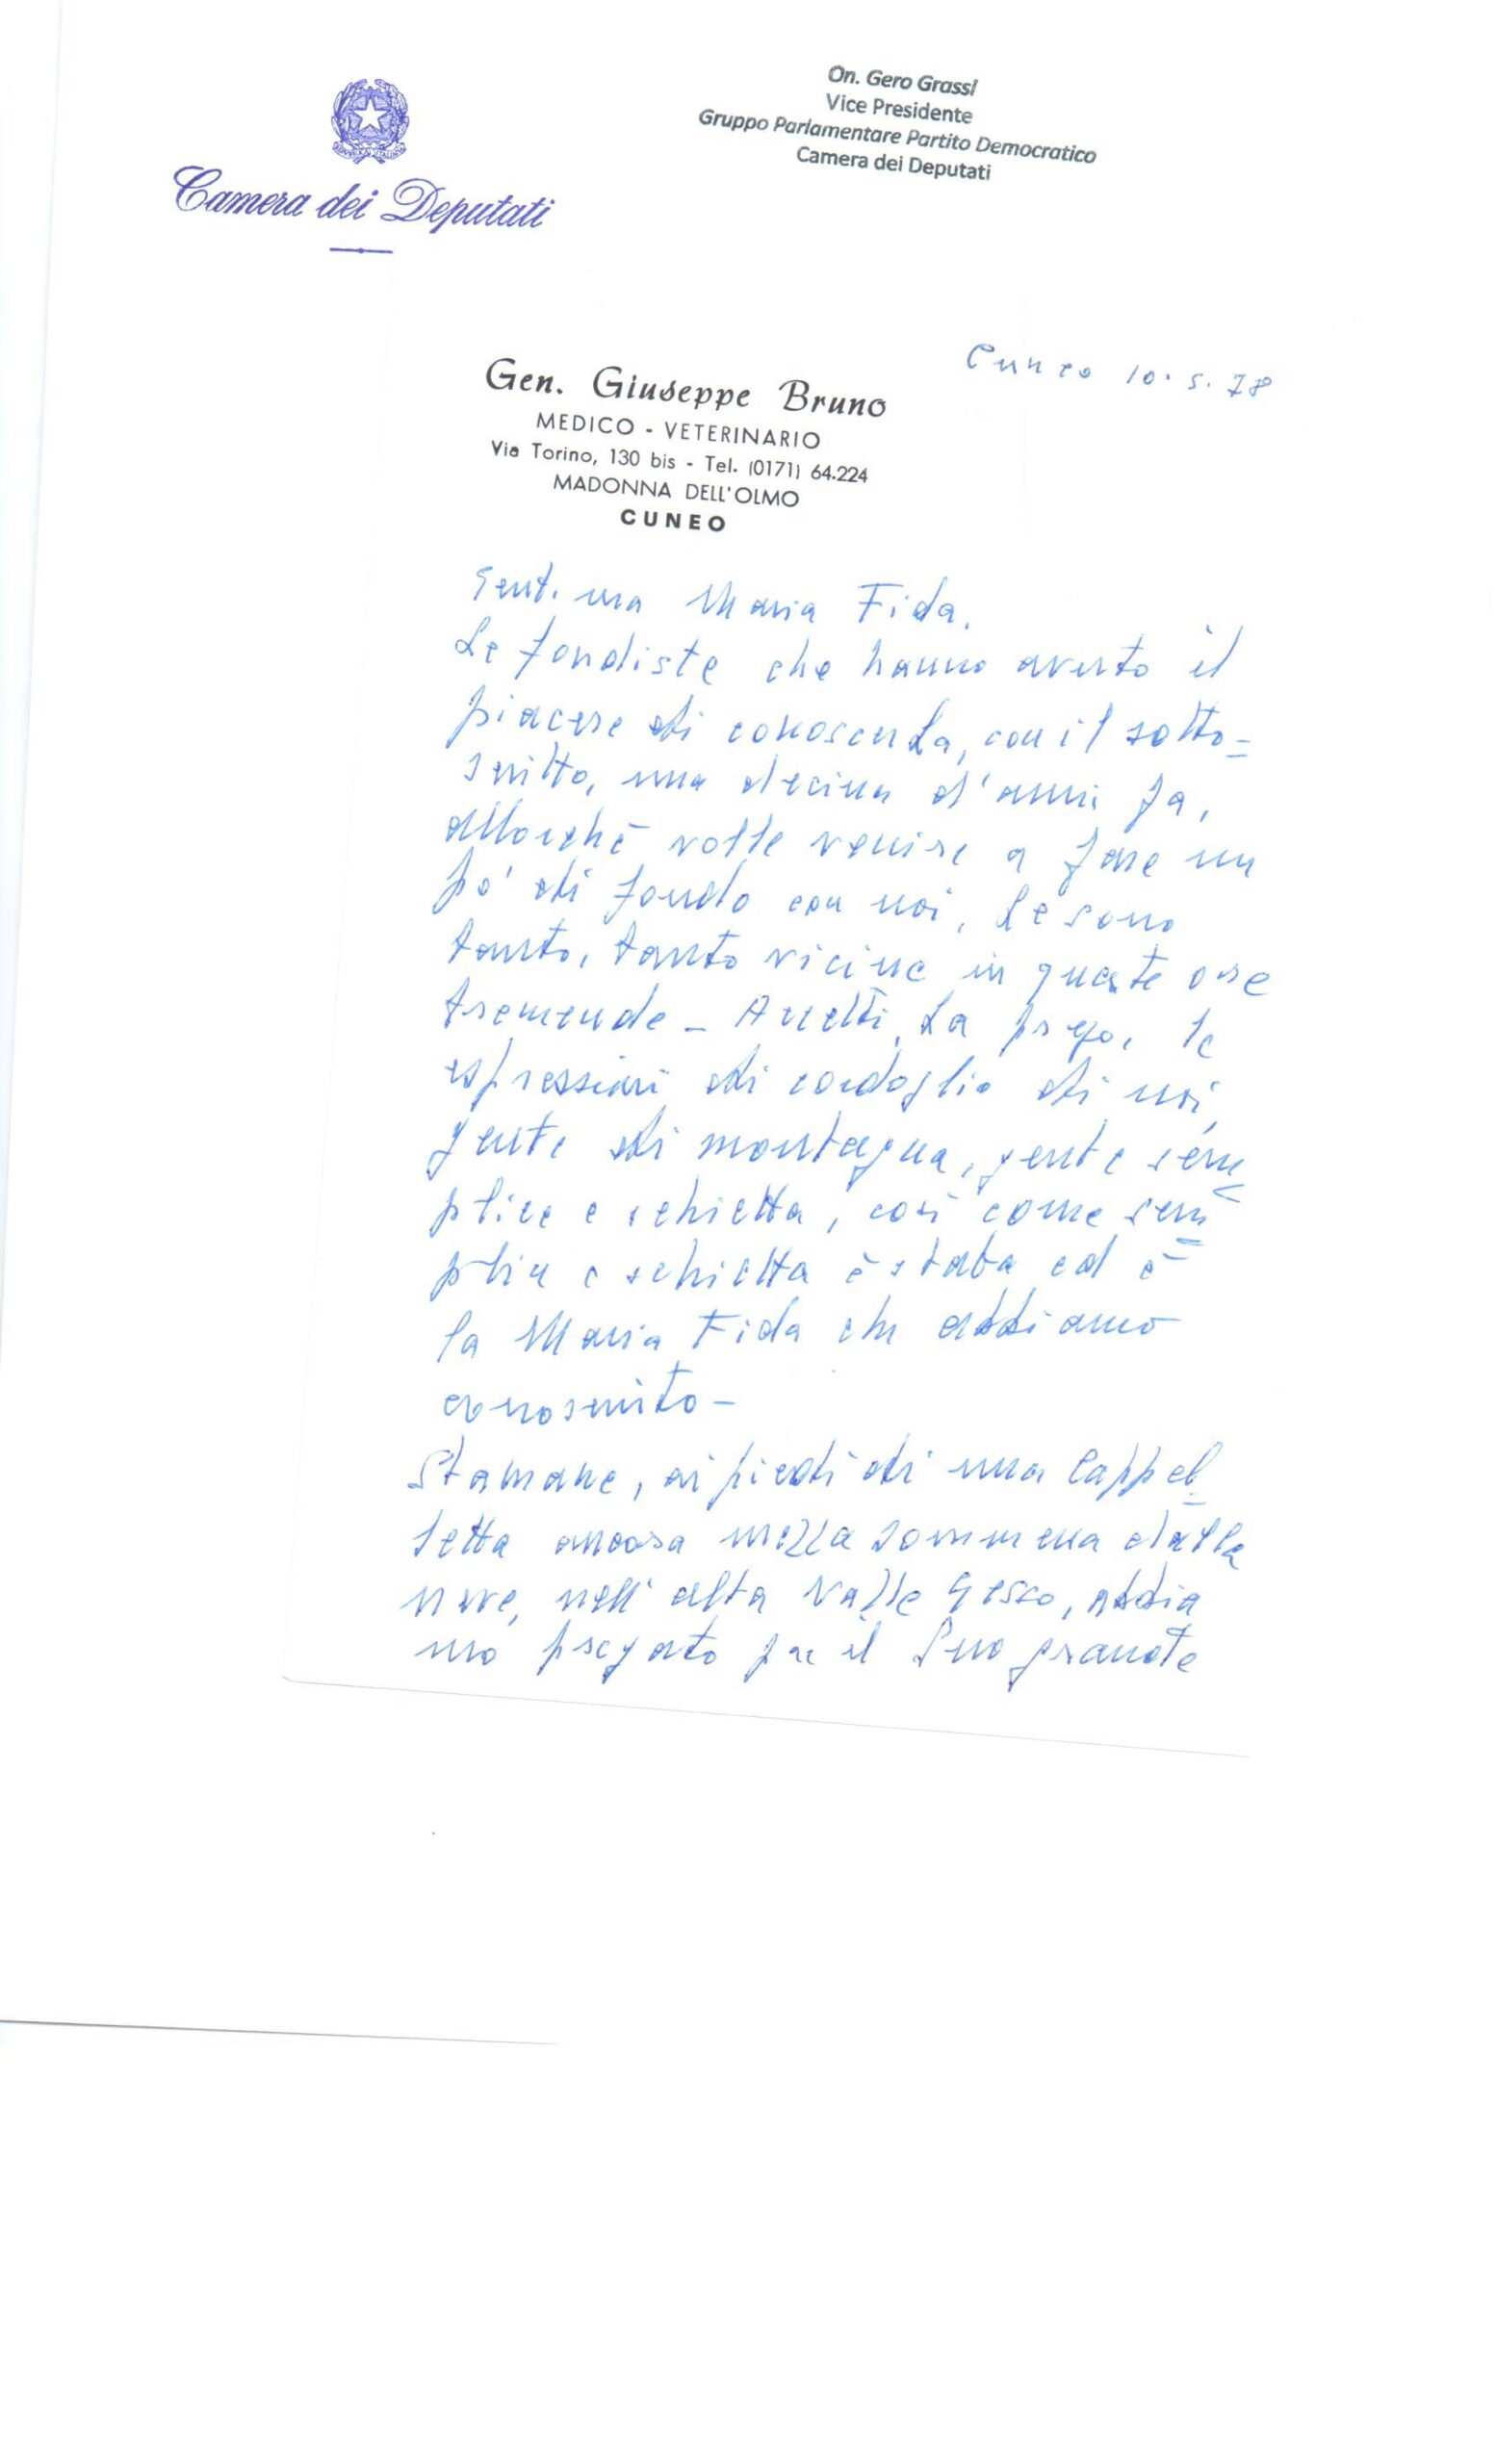 On. Gero Grassi
Vice Presidente
Gruppo Parlamentare Partito Democratico
Camera dei Deputati
REPVBBLICA ITALIANA
Camera dei Deputati
Cuneo 10.5.78
Gen. Giuseppe Bruno
MEDICO - VETERINARIO
Via Torino, 130 bis - Tel. (0171) 64.224
MADONNA DELL'OLMO
CUNEO
Gent.ma Maria Fida,
Le fondiste che hanno avuto il
piacere di conoscerLa, con il sotto=
scritto, una decina d'anni fa,
allorchè volle venire a fare un
po' di fondo con noi, Le sono
tanto, tanto vicine in queste ore
tremende - Accetti, La prego, le
espressioni di cordoglio di noi,
gente di montagna, gente sem=
plice e schietta, così come sem=
plice e schietta è stata ed è
la Maria Fida che abbiamo
conosciuto -
Stamane, ai piedi di una Cappel=
letta ancora mezza sommersa dalla
neve, nell'alta Valle Gesso, abbia
mo pregato per il Suo grande